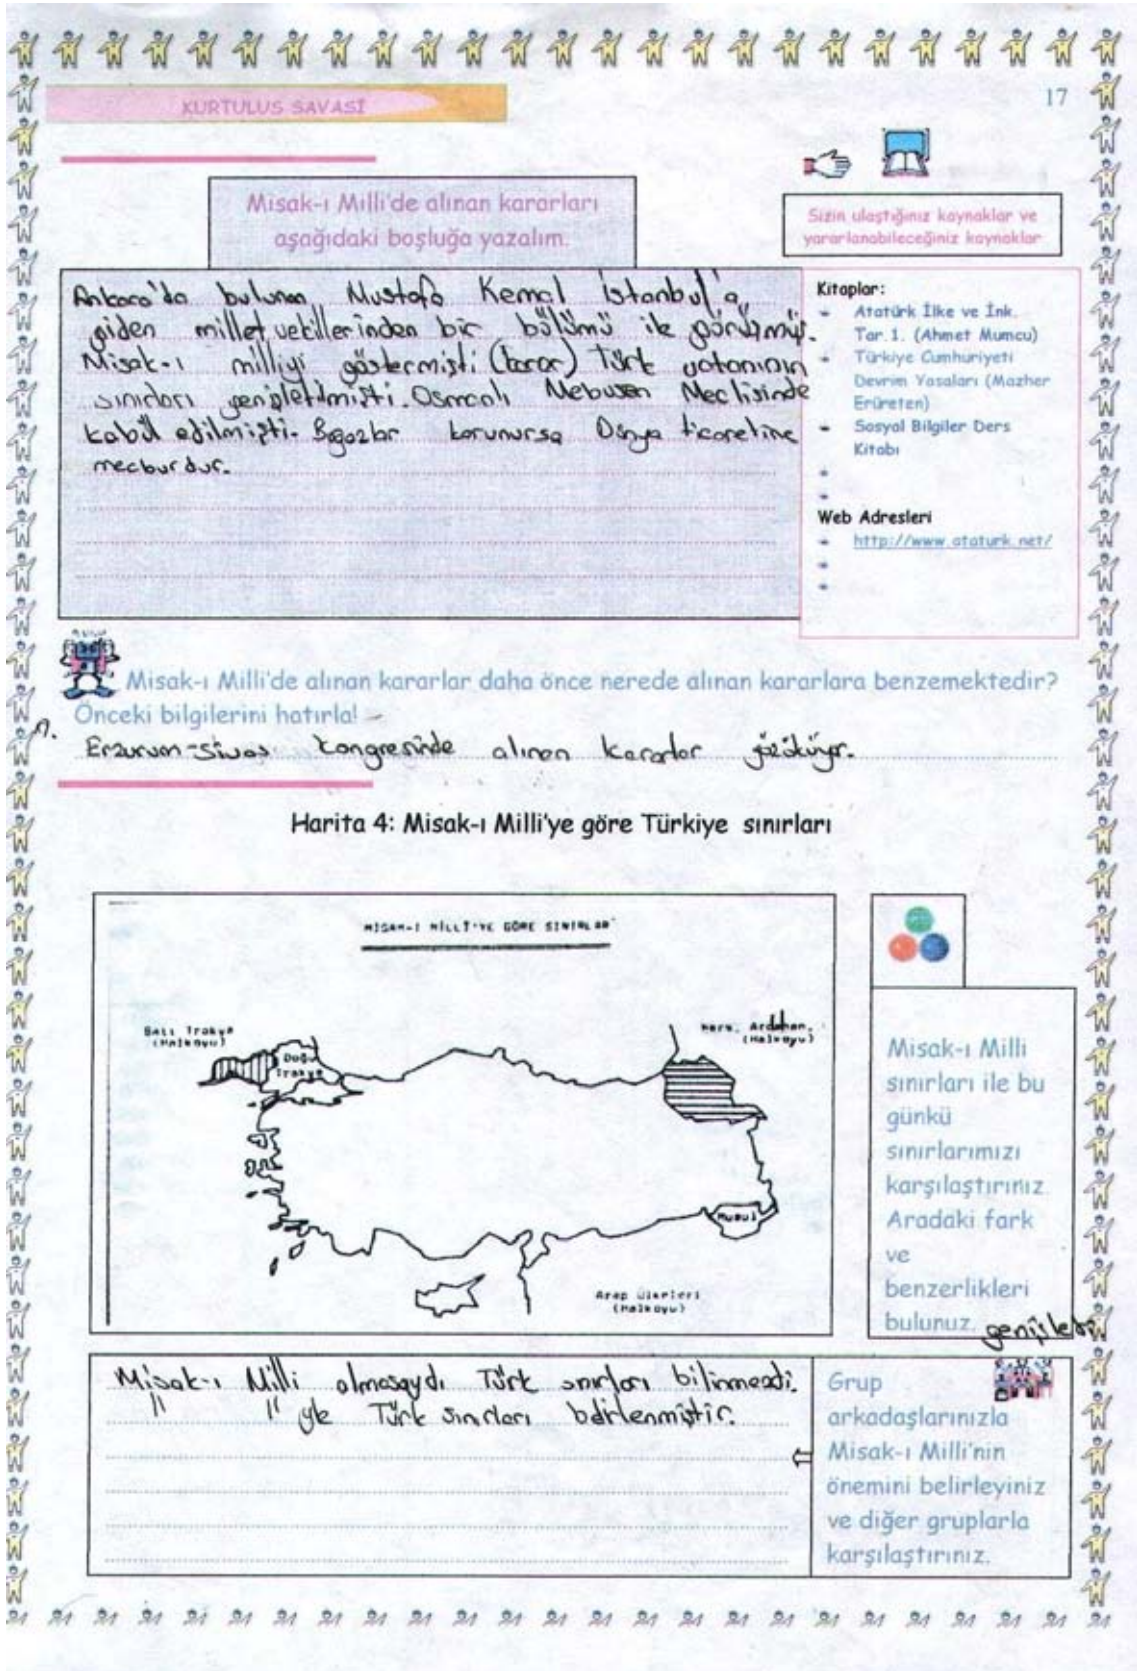 KURTULUS SAVASI
17
Misak-ı Milli'de alınan kararları
aşağıdaki boşluğa yazalım.
Sizin ulaştığınız kaynaklar ve
yararlanabileceğiniz kaynaklar
Ankara'da bulunan Mustafa Kemal İstanbul'a
giden millet vekillerinden bir bölümü ile görüşmüş.
Misak-ı milliyi göstermişti (karar) Türk vatanının
sınırları genişletilmişti. Osmanlı Mebusan Meclisinde
kabül edilmişti. Boğazlar korunursa Dünya ticaretine
mecburdur.
Kitaplar:
Atatürk İlke ve İnk.
Tar 1. (Ahmet Mumcu)
Türkiye Cumhuriyeti
Devrim Yasaları (Mazher
Erüreten)
Sosyal Bilgiler Ders
Kitabı
Web Adresleri
http://www.ataturk.net/
Misak-ı Milli'de alınan kararlar daha önce nerede alınan kararlara benzemektedir?
Önceki bilgilerini hatırla!
Erzurum-Sivas kongresinde alınan kararlar
Harita 4: Misak-ı Milli'ye göre Türkiye sınırları
MİSAK-I MİLLİ'YE GÖRE SINIRLAR
Batı Trakya
(Halkoyu)
Doğu
Trakya
Kars, Ardahan,
(Halkoyu)
Musul
Arap Ülkeleri
(Halkoyu)
Misak-ı Milli
sınırları ile bu
günkü
sınırlarımızı
karşılaştırınız.
Aradaki fark
ve
benzerlikleri
bulunuz.
Misak-ı Milli olmasaydı Türk sınırları bilinmezdi.
" " yle Türk sınırları belirlenmiştir.
Grup
arkadaşlarınızla
Misak-ı Milli'nin
önemini belirleyiniz
ve diğer gruplarla
karşılaştırınız.